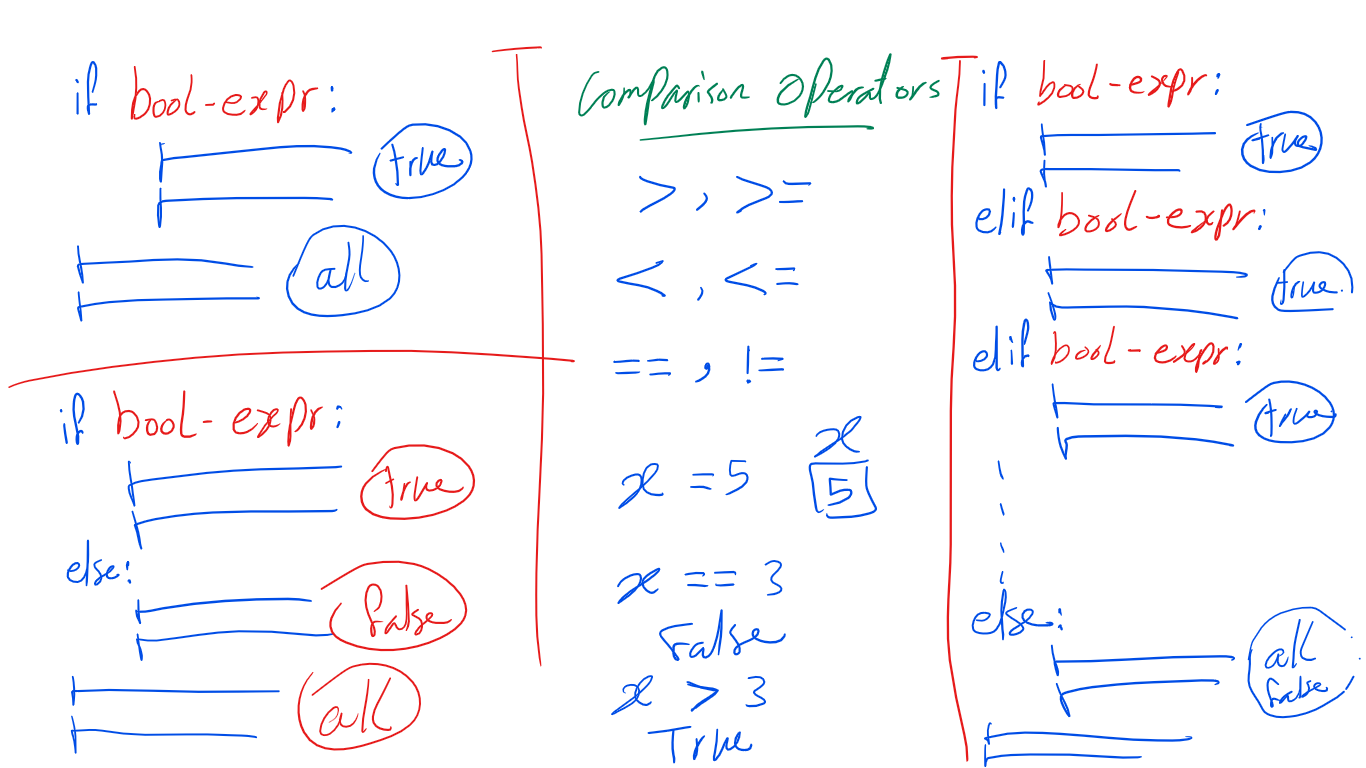 if bool-expr:
true
all
if bool-expr:
true
else:
false
all
Comparison Operators
> , >=
< , <=
== , !=
x
x = 5 5
x == 3
False
x > 3
True
if bool-expr:
true
elif bool-expr:
true
elif bool-expr:
true
else:
all
false